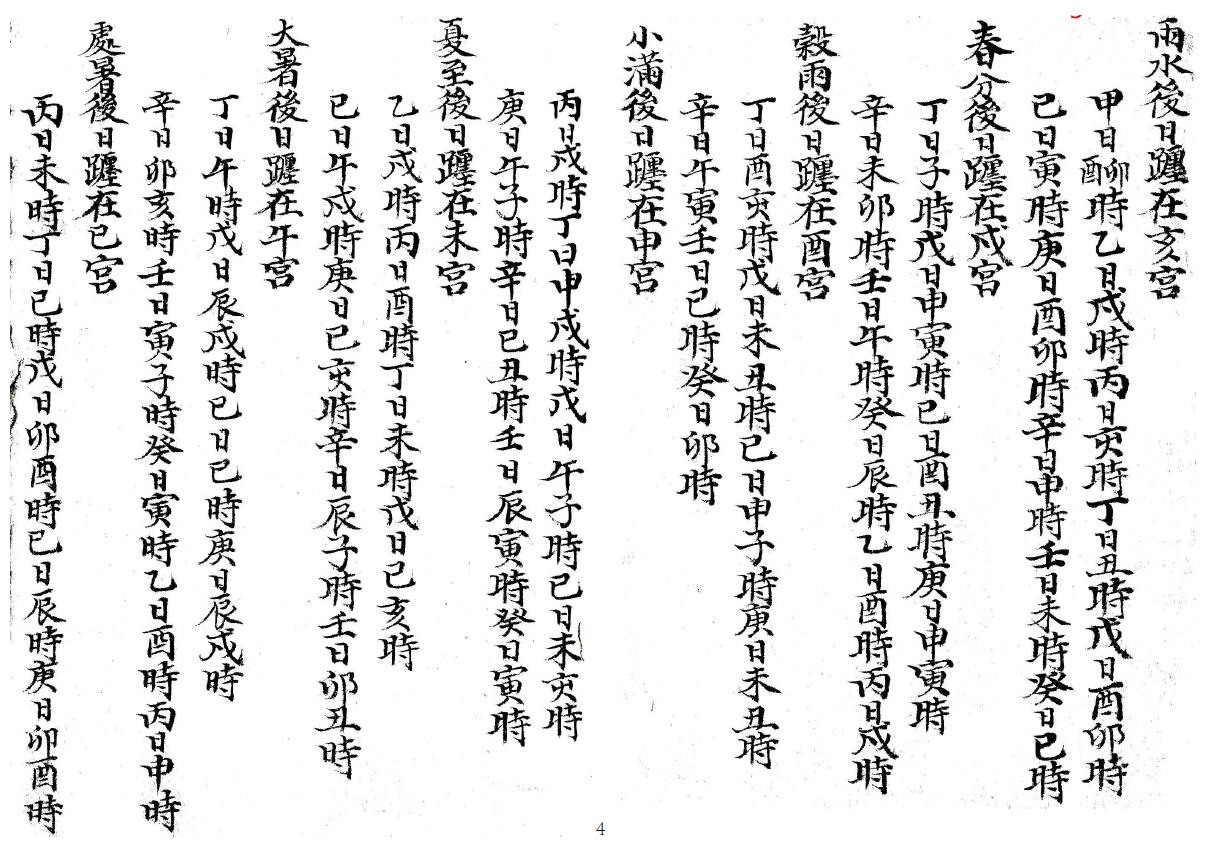 雨水後日躔在亥宮
甲日卯酉時乙日戌時丙日亥時丁日丑時戊日酉卯時
己日寅時庚日酉卯時辛日申時壬日未時癸日巳時
春分後日躔在戌宮
丁日子時戊日申寅時己日酉丑時庚日申寅時
辛日未卯時壬日午時癸日辰時乙日酉時丙日戌時
穀雨後日躔在酉宮
丁日酉亥時戊日未丑時己日申子時庚日未丑時
辛日午寅壬日巳時癸日卯時
小滿後日躔在申宮
丙日戌時丁日申戌時戊日午子時己日未亥時
庚日午子時辛日巳丑時壬日辰寅時癸日寅時
夏至後日躔在未宮
乙日戌時丙日酉時丁日未時戊日巳亥時
己日午戌時庚日巳亥時辛日辰子時壬日卯丑時
大暑後日躔在午宮
丁日午時戊日辰戌時己日巳時庚日辰戌時
辛日卯亥時壬日寅子時癸日寅時乙日酉時丙日申時
處暑後日躔在巳宮
丙日未時丁日巳時戊日卯酉時己日辰時庚日卯酉時
4